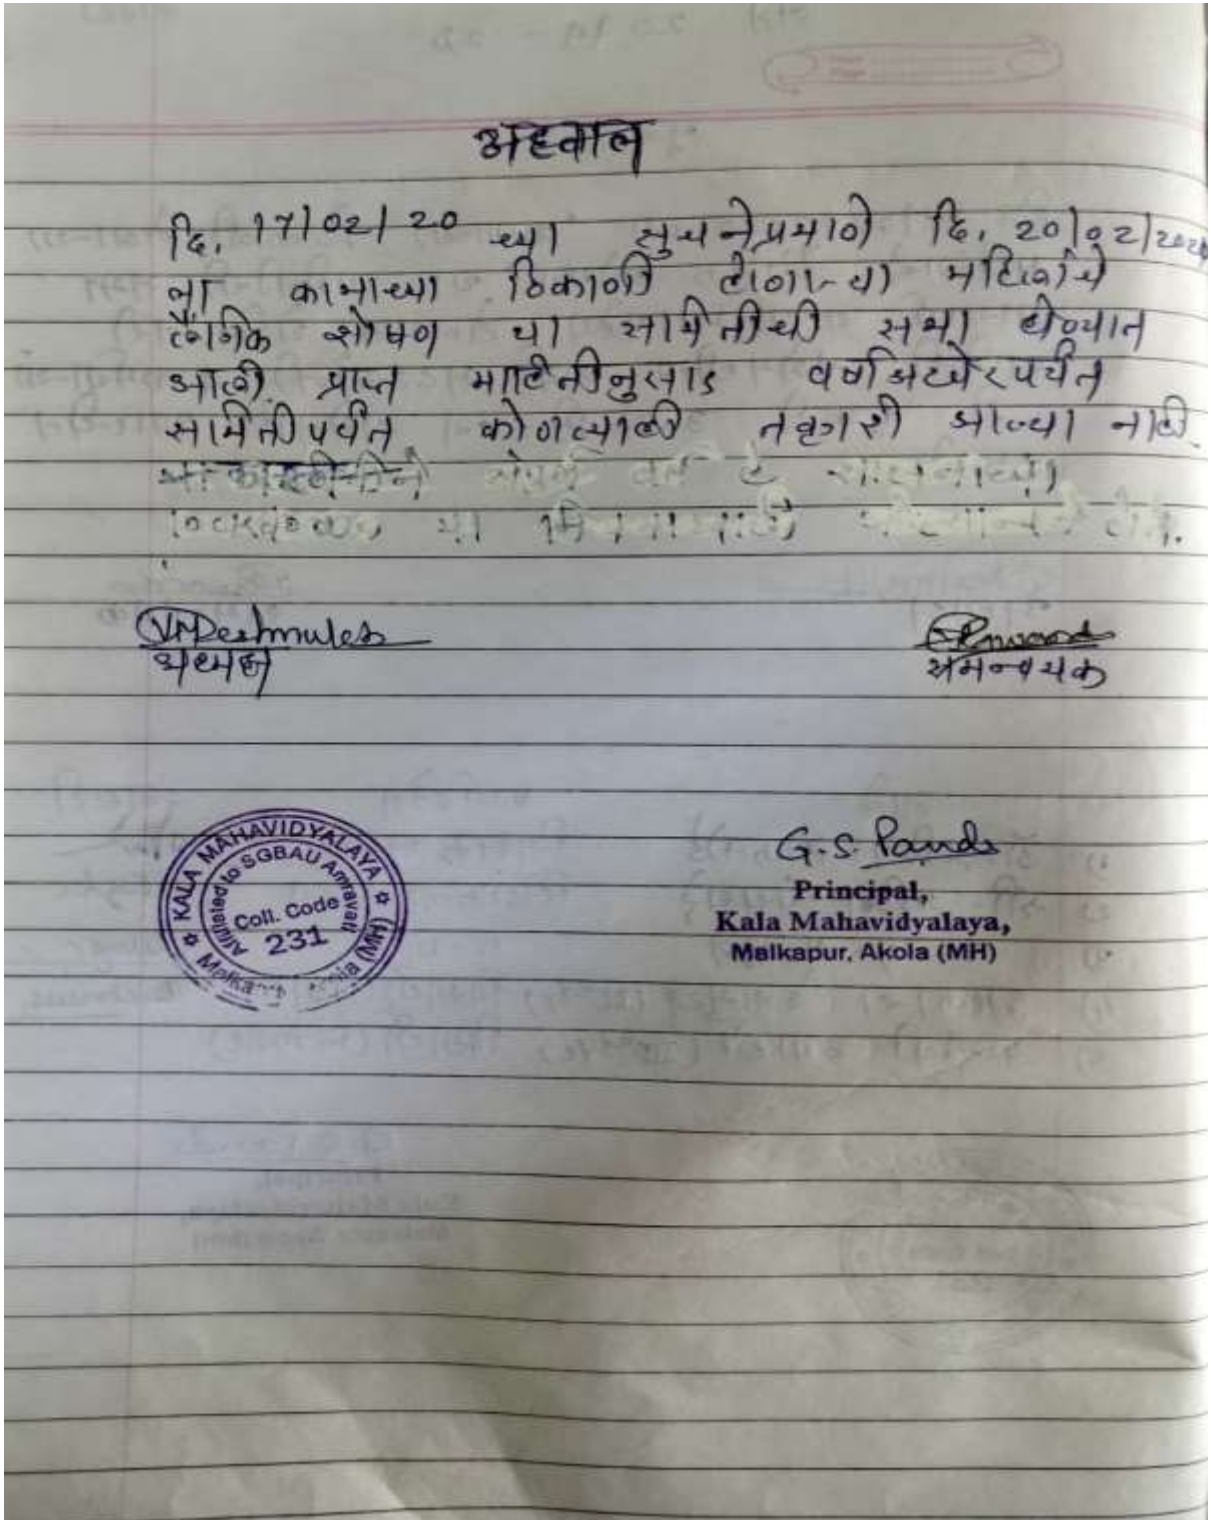 अहवाल
दि. 17/02/20 च्या सुचनेप्रमाणे दि. 20/02/2020
ला कामाच्या ठिकाणी होणाऱ्या महिलांचे
लैंगिक शोषण या समितीची सभा घेण्यात
आली. प्राप्त माहितीनुसार वर्षाअखेरपर्यंत
समितीपर्यंत कोणत्याही तक्रारी आल्या नाही.
VMDeshmukh
अध्यक्ष
समन्वयक
KALA MAHAVIDYALAYA
Affiliated to SGBAU Amravati
Coll. Code
231
(MH)
G.S. Pande
Principal,
Kala Mahavidyalaya,
Malkapur, Akola (MH)